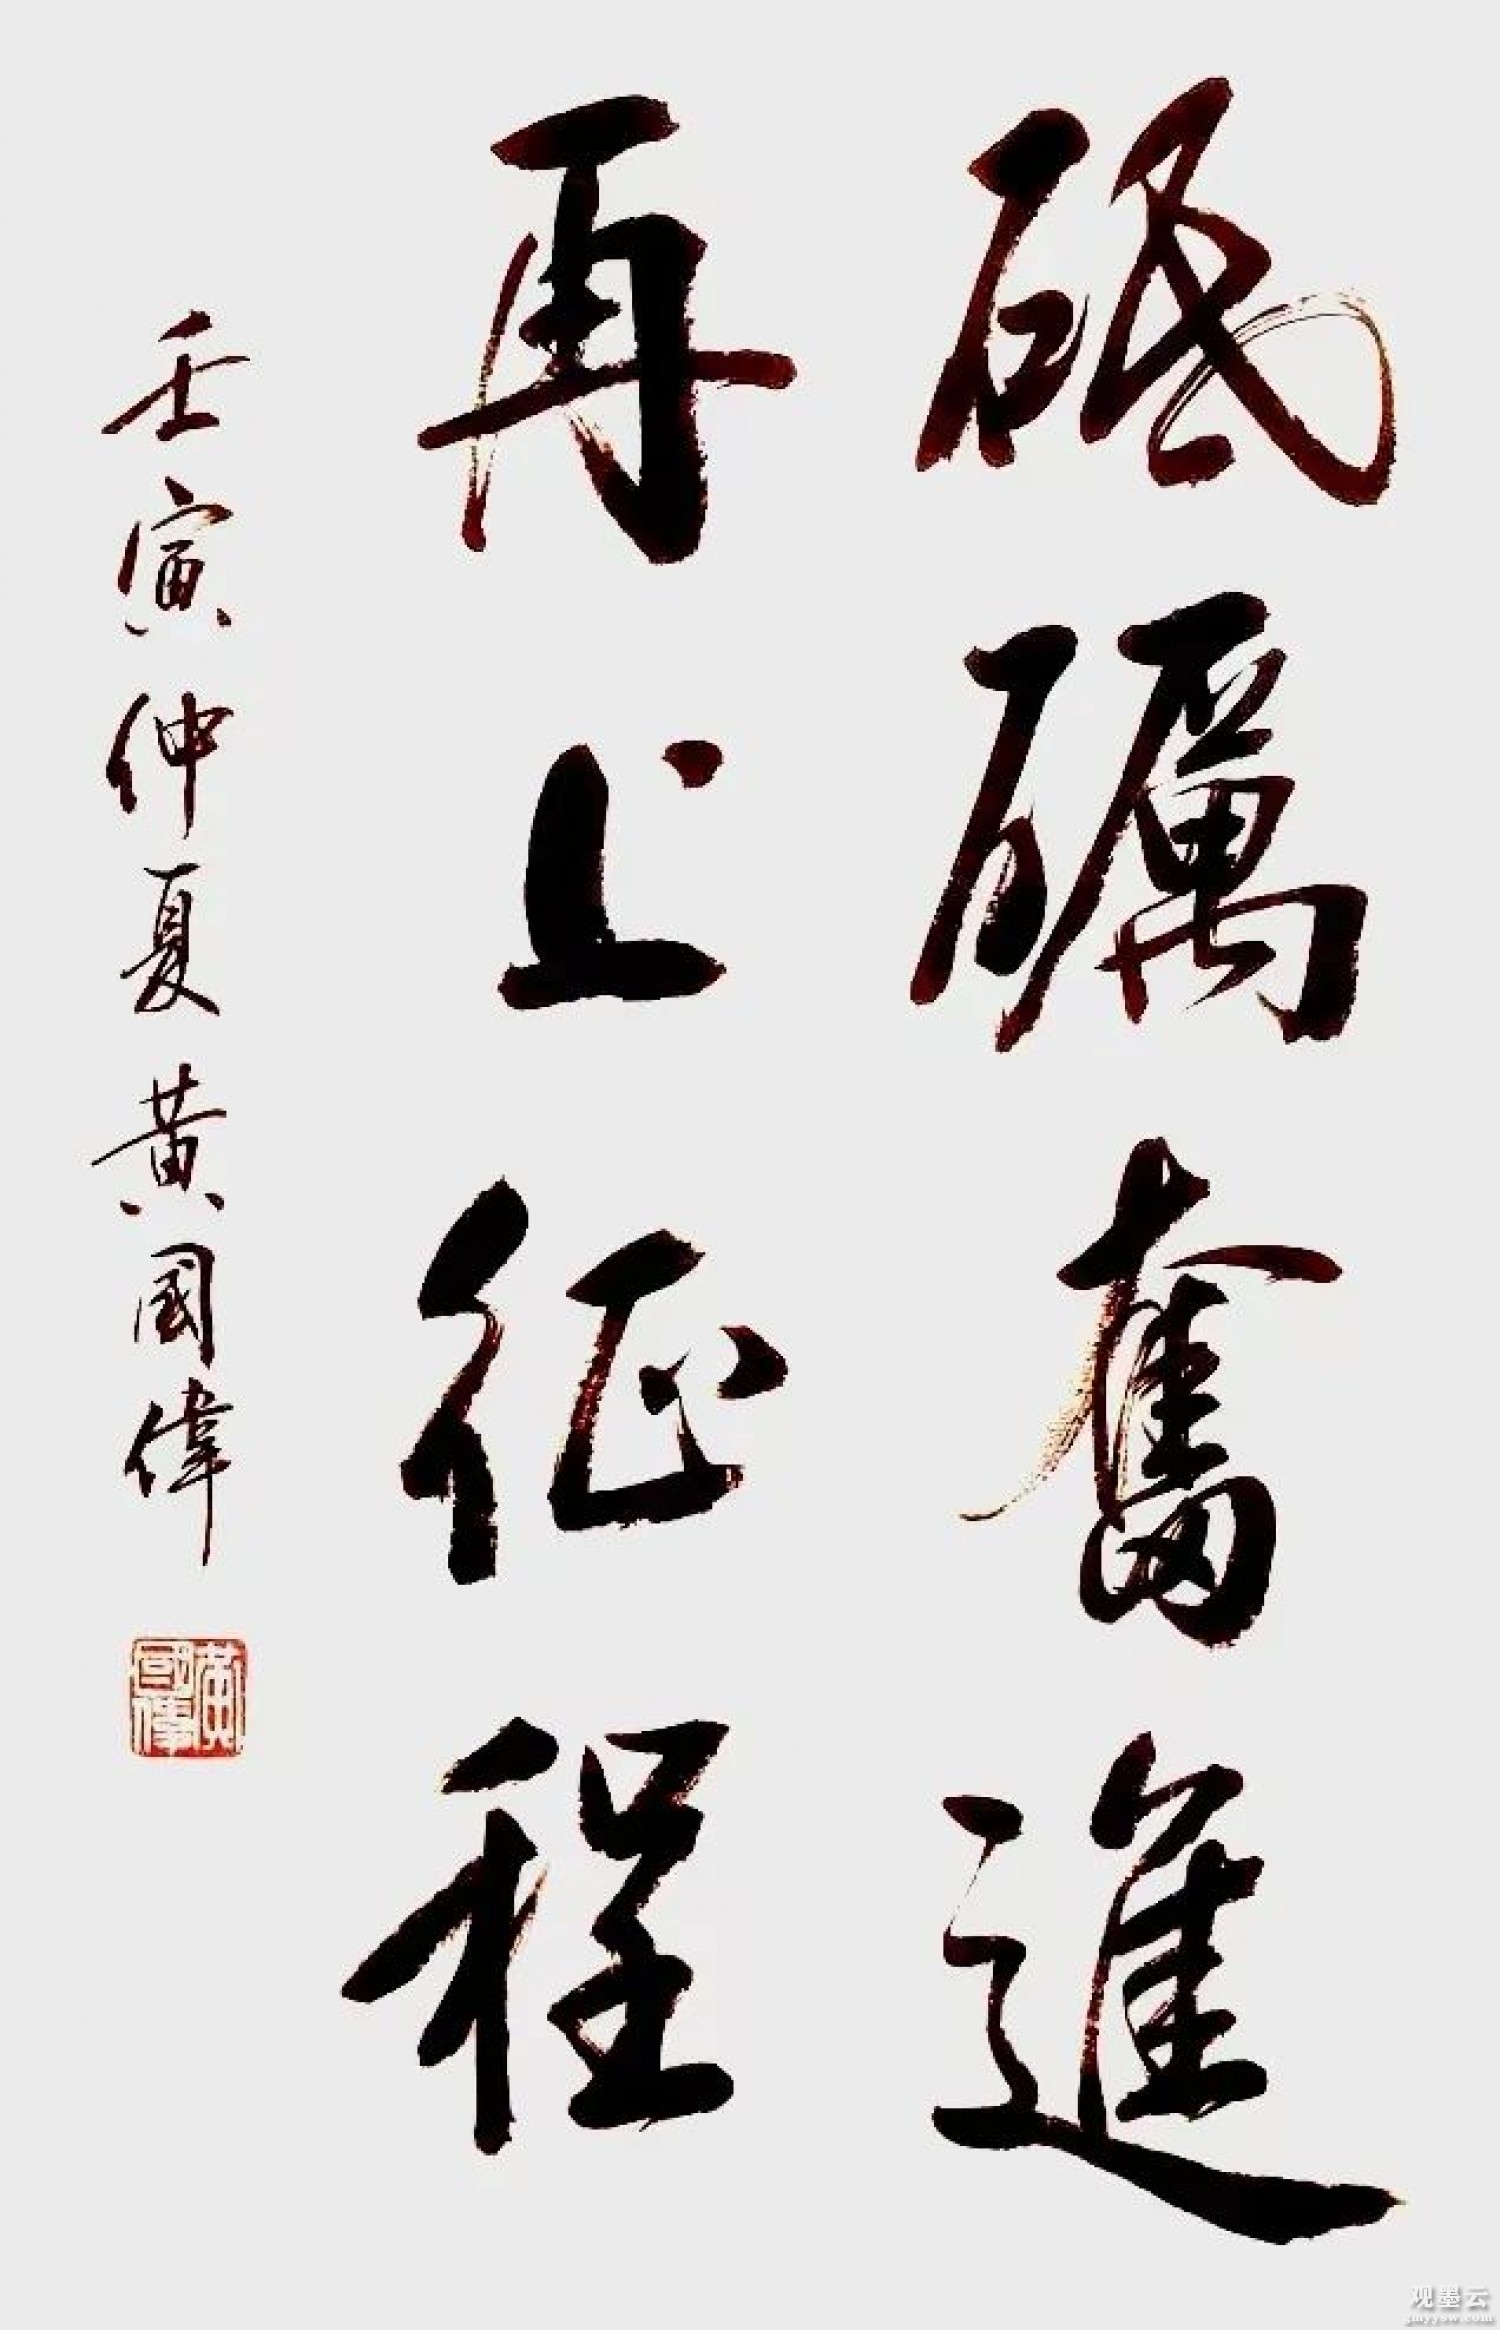 砥礪奮進
再上征程
壬寅仲夏黄國偉
黄國偉
观墨云
gmyysw.com